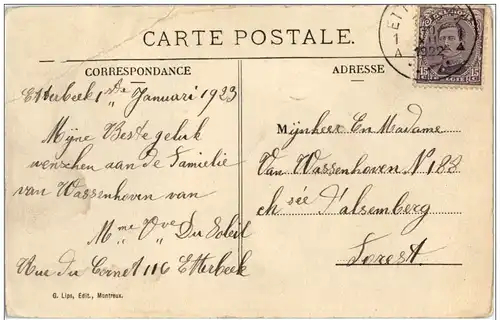 CARTE POSTALE.
CORRESPONDANCE
Etterbeek 1ste Januari 1923
Mijne Beste geluk
wenschen aan de Familie
van Wassenhoven van
Mme Vve Du Soleil
Rue du Cornet 116 Etterbeek
G. Lips, Édit., Montreux.
ADRESSE
Mijnheer En Madame
Van Wassenhoven No 188
ch sée d'alsemberg
Forest.
ETT
1
1922
A
15 15